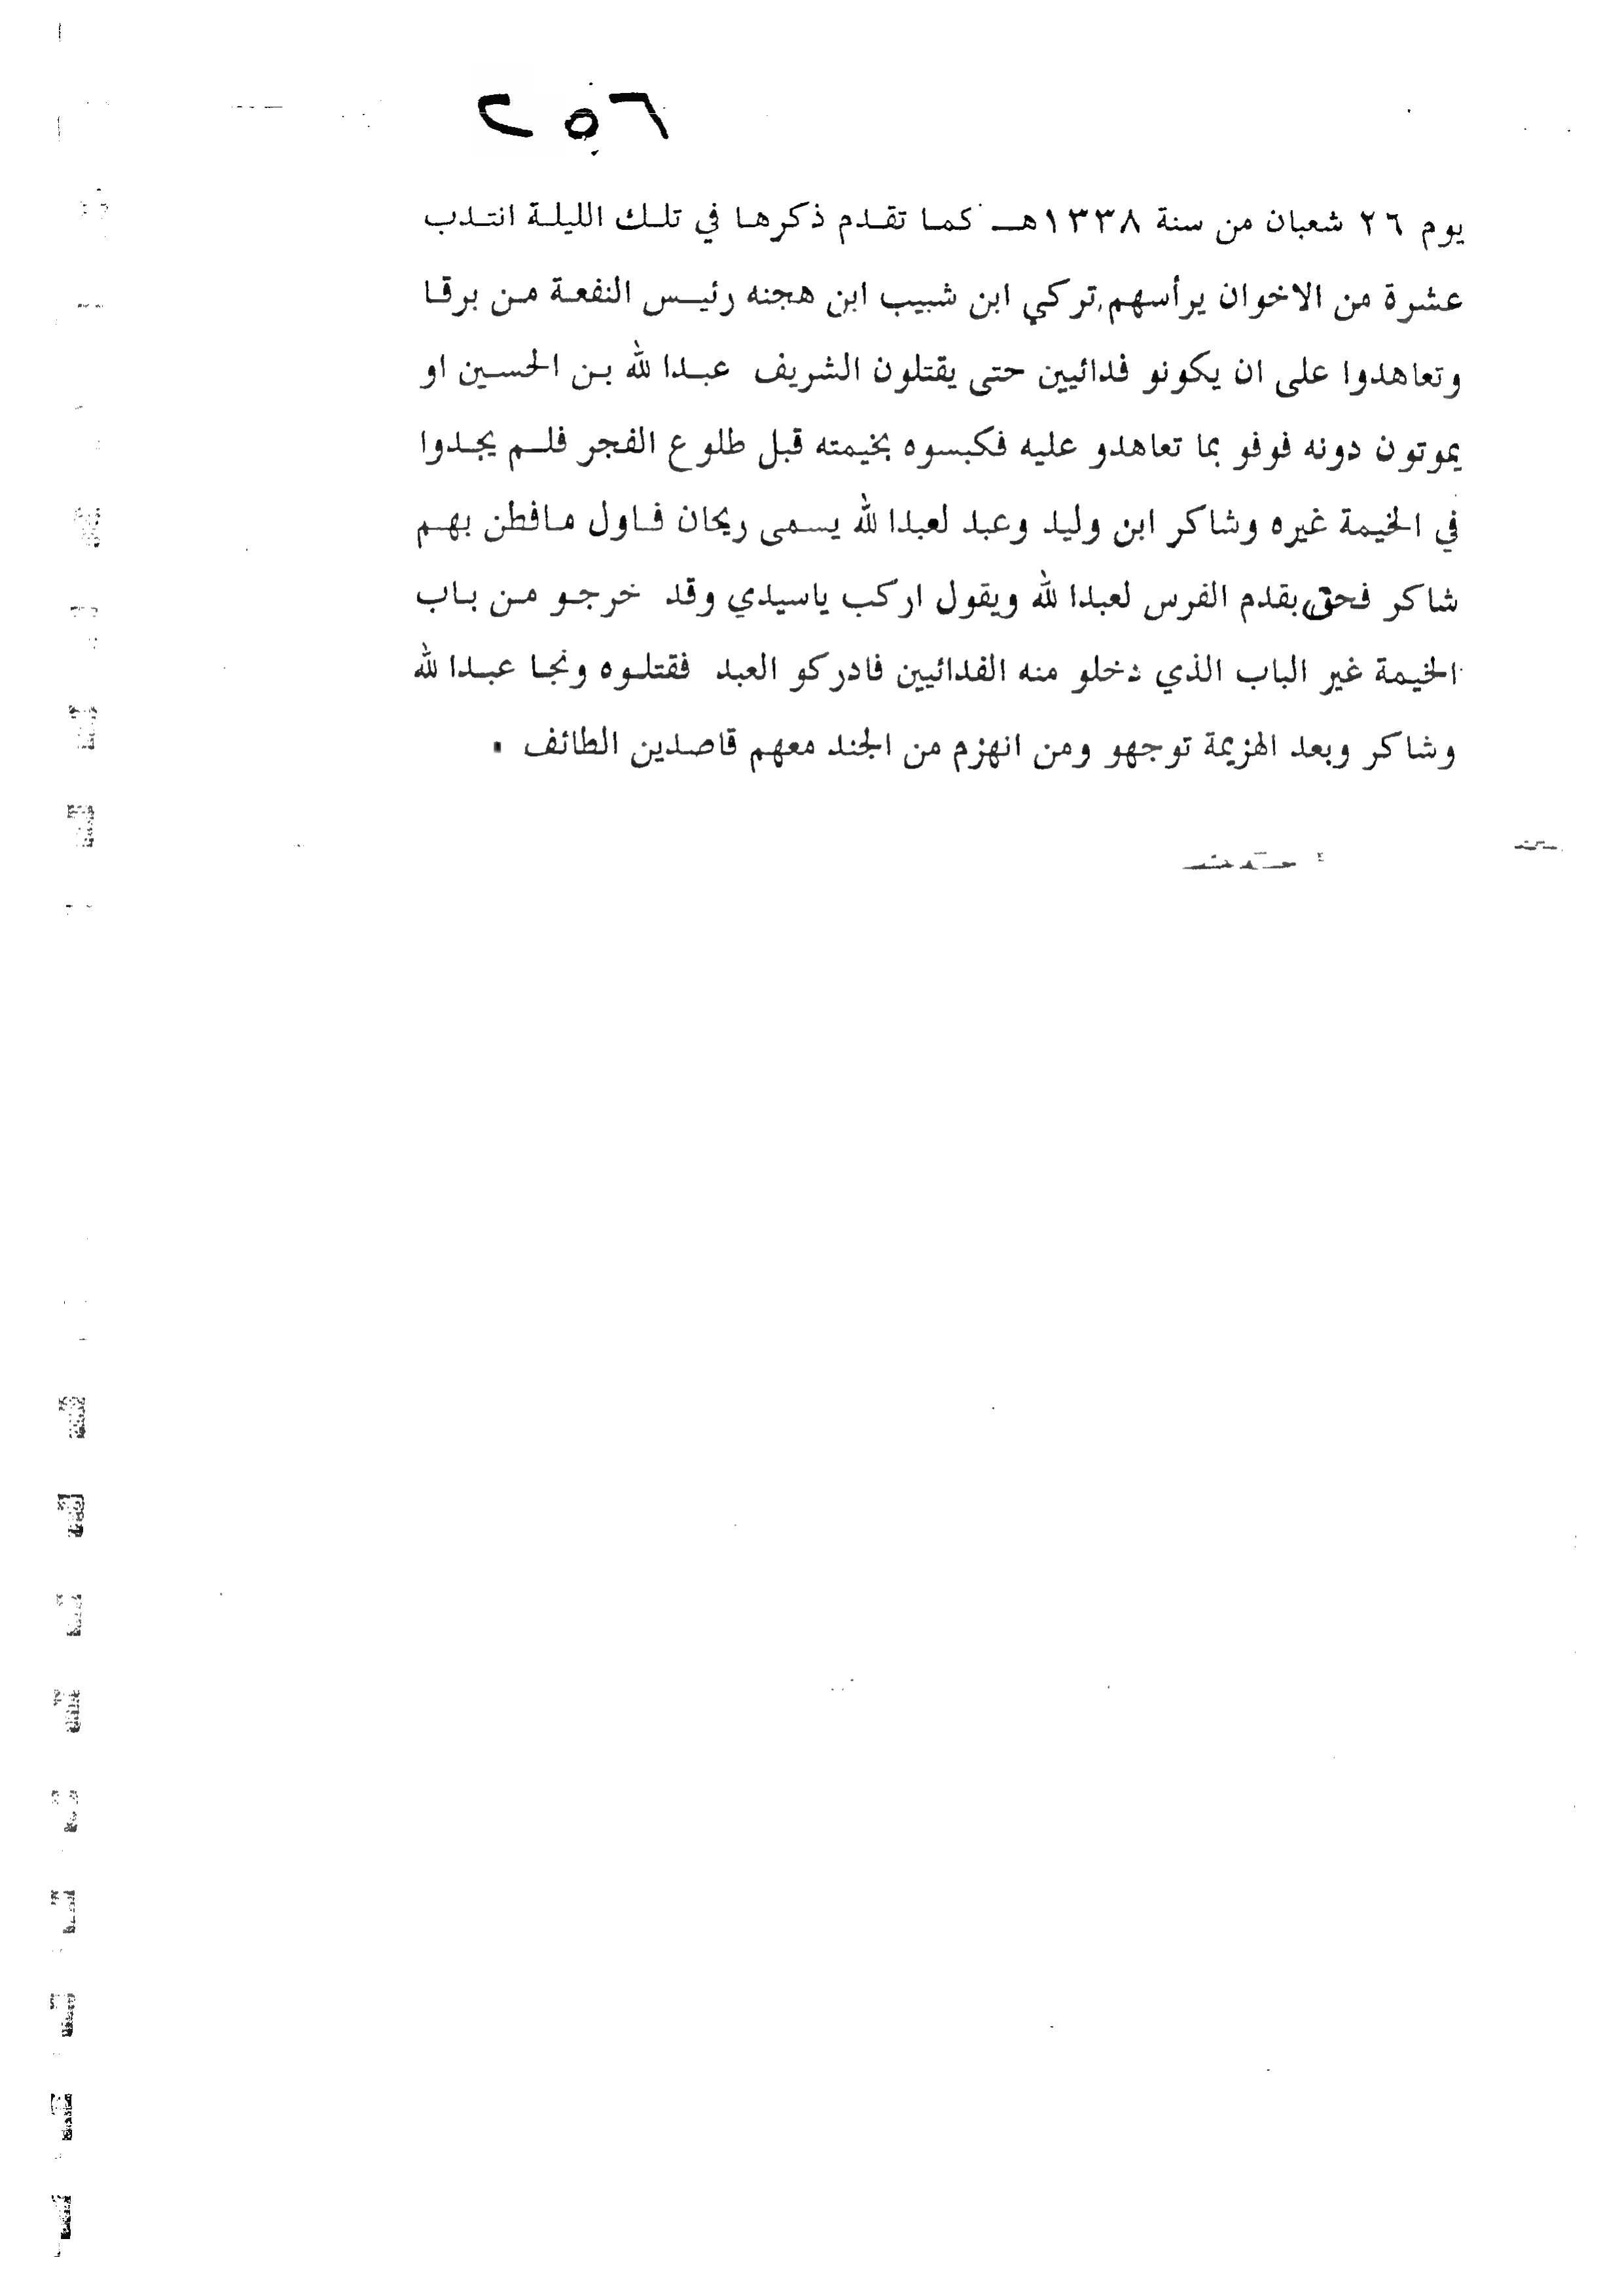 ٢٥٦
يوم ٢٦ شعبان من سنة ١٣٣٨هـ كما تقدم ذكرها في تلك الليلة انتدب
عشرة من الاخوان يرأسهم تركي ابن شبيب ابن هجنه رئيس النفعة من برقا
وتعاهدوا على ان يكونو فدائيين حتى يقتلون الشريف عبدا لله بن الحسين او
يموتون دونه فوفو بما تعاهدو عليه فكبسوه بخيمته قبل طلوع الفجر فلم يجدوا
في الخيمة غيره وشاكر ابن وليد وعبد لعبدا لله يسمى ريحان فاول مافطن بهم
شاكر فحق بقدم الفرس لعبدا لله ويقول اركب ياسيدي وقد خرجو من باب
الخيمة غير الباب الذي دخلو منه الفدائيين فادركو العبد فقتلوه ونجا عبدا لله
وشاكر وبعد الهزيمة توجهو ومن انهزم من الجند معهم قاصدين الطائف .